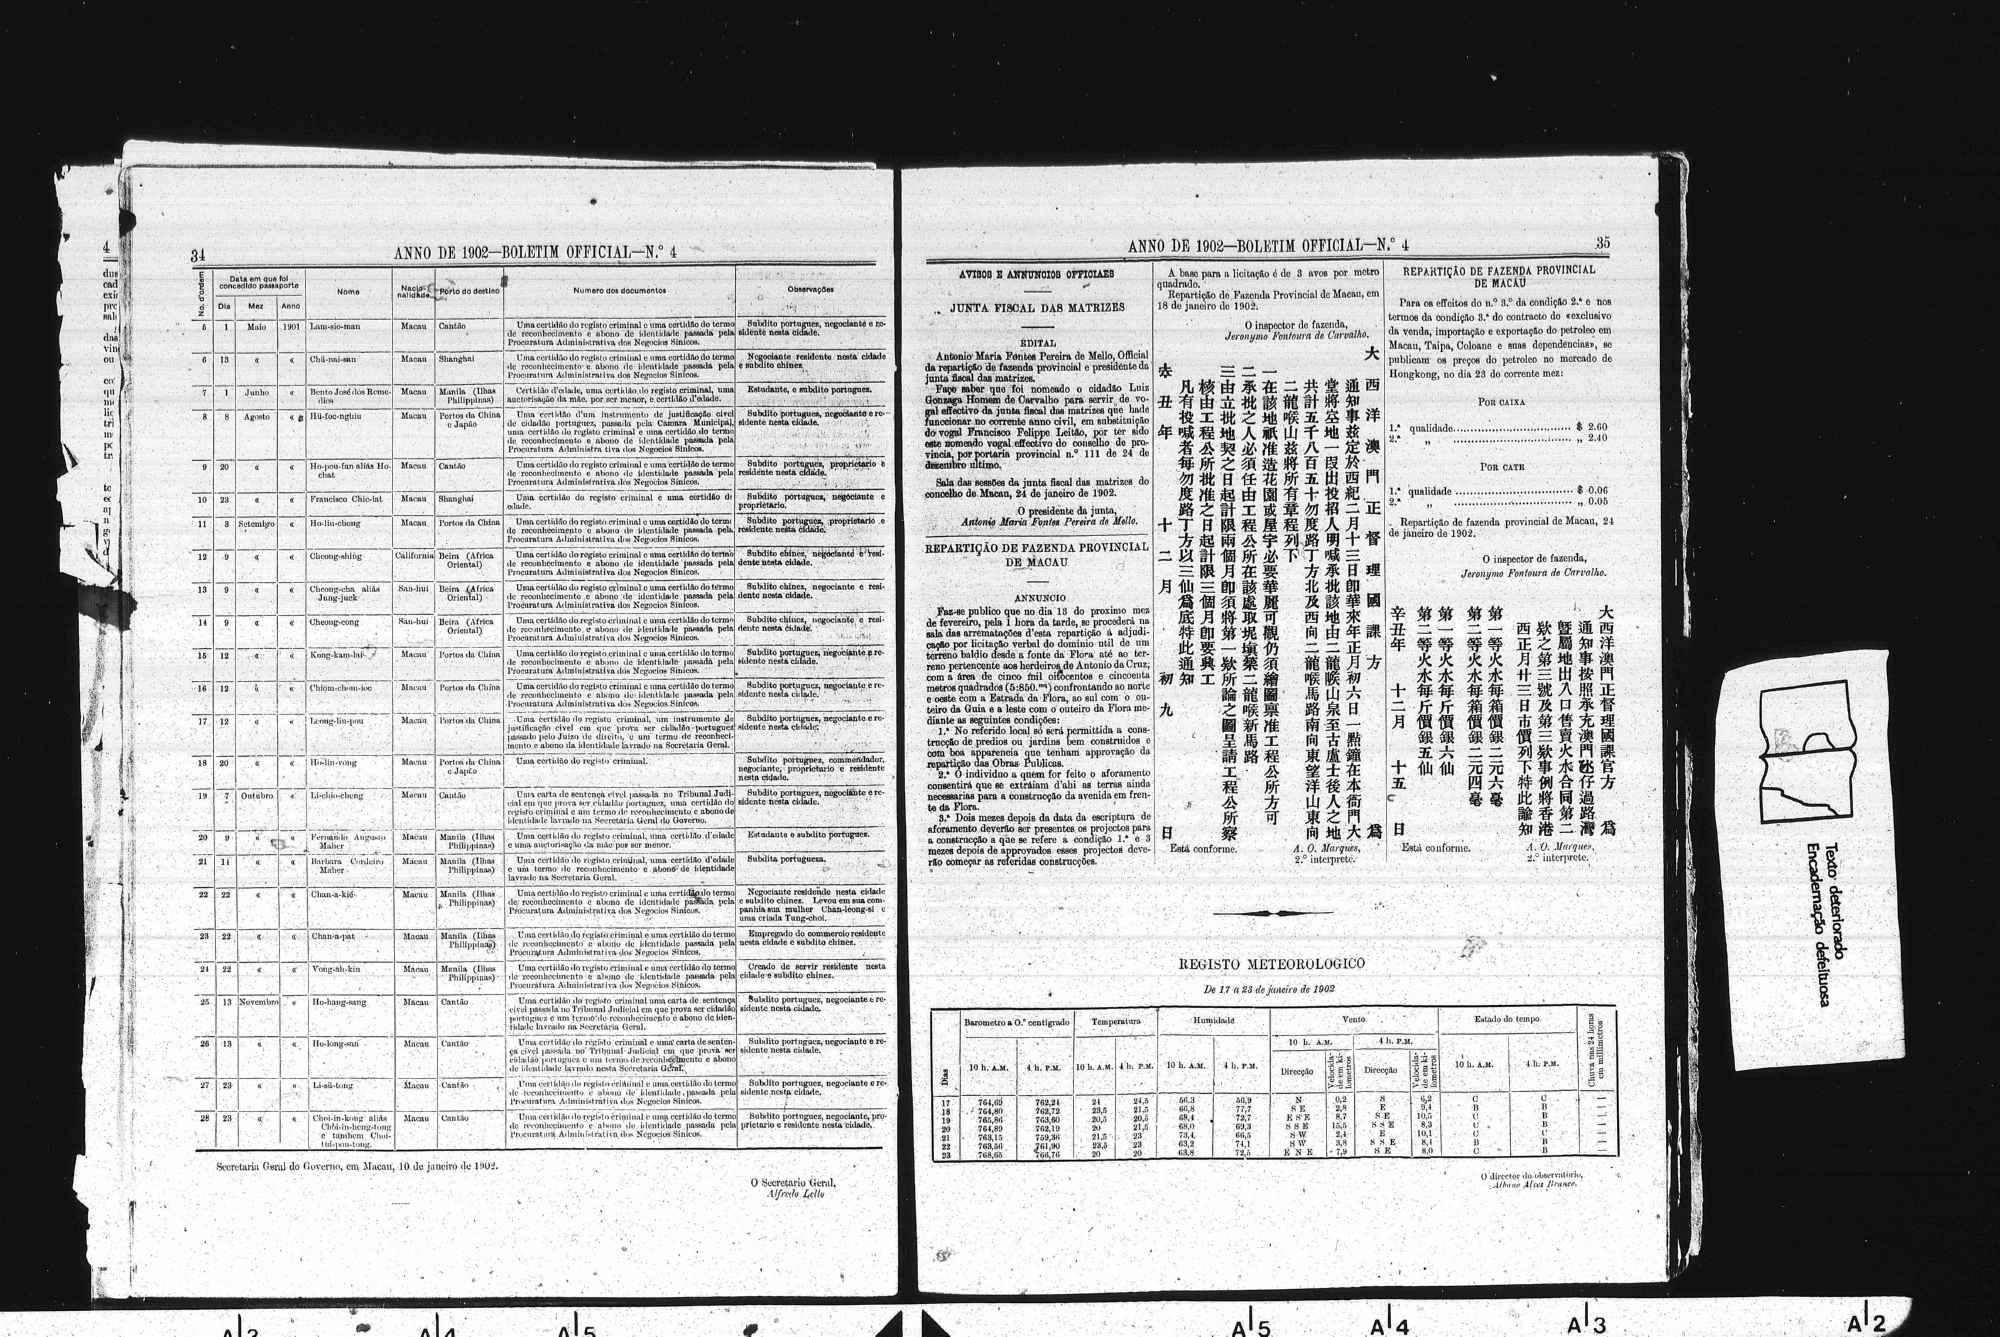 34
ANNO DE 1902—BOLETIM OFFICIAL—N.º 4
No. d'ordem
Data em que foi
concedido passaporte
Dia
Mez
Anno
Nome
Nacio-
nalidade
Porto do destino
Numero dos documentos
Observações
5 1 Maio 1901 Lam-sio-man Macau Cantão
Uma certidão do registo criminal e uma certidão do termo
de reconhecimento e abono de identidade passada pela
Procuratura Administrativa dos Negocios Sinicos.
Subdito portuguez, negociante e re-
sidente nesta cidade.
6 13 « « Chü-nai-san Macau Shanghai
Uma certidão do registo criminal e uma certidão do termo
de reconhecimento e abono de identidade passada pela
Procuratura Administrativa dos Negocios Sinicos.
Negociante residente nesta cidade
e subdito chinez.
7 1 Junho « Bento José dos Reme-
dios
Macau Manila (Ilhas
Philippinas)
Certidão d'edade, uma certidão do registo criminal, uma
auctorisação da mãe, por ser menor, e certidão d'edade.
Estudante, e subdito portuguez.
8 8 Agosto « Hü-foc-nghiu Macau Portos da China
e Japão
Uma certidão d'um instrumento de justificação civel
de cidadão portuguez, passada pela Camara Municipal,
uma certidão do registo criminal e uma certidão do termo
de reconhecimento e abono de identidade passada pela
Procuratura Administra tiva dos Negocios Sinicos.
Subdito portuguez, negociante e re-
sidente nesta cidade.
9 20 « « Ho-pou-fan aliás Ho-
chat
Macau Cantão
Uma certidão do registo criminal e uma certidão do termo
de reconhecimento e abono de identidade passada pela
Procuratura Administrativa dos Negocios Sinicos.
Subdito portuguez, proprietario e
residente nesta cidade.
10 23 « « Francisco Chic-iat Macau Shanghai
Uma certidão do registo criminal e uma certidão de
edade.
Subdito portuguez, negociante e
proprietario.
11 3 Setembro « Ho-lin-cheong Macau Portos da China
Uma certidão do registo criminal e uma certidão do termo
de reconhecimento e abono de identidade passada pela
Procuratura Administrativa dos Negocios Sinicos.
Subdito portuguez, proprietario e
residente nesta cidade.
12 9 « « Cheong-shing California Beira (Africa
Oriental)
Uma certidão do registo criminal e uma certidão do termo
de reconhecimento e abono de identidade passada pela
Procuratura Administrativa dos Negocios Sinicos.
Subdito chinez, negociante e resi-
dente nesta cidade.
13 9 « « Cheong-cha aliás
Jung-juck
San-hui Beira (Africa
Oriental)
Uma certidão do registo criminal e uma certidão do termo
de reconhecimento e abono de identidade passada pela
Procuratura Administrativa dos Negocios Sinicos.
Subdito chinez, negociante e resi-
dente nesta cidade.
14 9 « « Cheong-cong San-hui Beira (Africa
Oriental)
Uma certidão do registo criminal e uma certidão do termo
de reconhecimento e abono de identidade passada pela
Procuratura Administrativa dos Negocios Sinicos.
Subdito chinez, negociante e resi-
dente nesta cidade.
15 12 « « Kong-kam-lai Macau Portos da China
Uma certidão do registo criminal e uma certidão do termo
de reconhecimento e abono de identidade passada pela
Procuratura Administrativa dos Negocios Sinicos.
Subdito portuguez, negociante e re-
sidente nesta cidade.
16 12 « « Chiom-chom-ioc Macau Portos da China
Uma certidão do registo criminal e uma certidão do termo
de reconhecimento e abono de identidade passada pela
Procuratura Administrativa dos Negocios Sinicos.
Subdito portuguez, negociante e re-
sidente nesta cidade.
17 12 « « Leong-lin-pou Macau Portos da China
Uma certidão do registo criminal, um instrumento de
justificação civel em que prova ser cidadão portuguez
passado pelo Juizo de direito, e um termo de reconheci-
mento e abono da identidade lavrado na Secretaria Geral.
Subdito portuguez, negociante e re-
sidente nesta cidade.
18 20 « « Ho-lin-vong Macau Portos da China
e Japão
Uma certidão do registo criminal.
Subdito portuguez, commendador,
negociante, proprietario e residente
nesta cidade.
19 7 Outubro « Li-chio-cheng Macau Cantão
Uma carta de sentença civel passada no Tribunal Judi-
cial em que prova ser cidadão portuguez, uma certidão do
registo criminal e um termo de reconhecimento e abono de
identidade lavrado na Secretaria Geral do Governo.
Subdito portuguez, negociante e re-
sidente nesta cidade.
20 9 « « Fernando Augusto
Maher
Macau Manila (Ilhas
Philippinas)
Uma certidão do registo criminal, uma certidão d'edade
e uma auctorisação da mãe por ser menor.
Estudante e subdito portuguez.
21 11 « « Barbara Cordeiro
Maher
Macau Manila (Ilhas
Philippinas)
Uma certidão do registo criminal, uma certidão d'edade
e um termo de reconhecimento e abono de identidade
lavrado na Secretaria Geral.
Subdita portugueza.
22 22 « « Chan-a-kié Macau Manila (Ilhas
Philippinas)
Uma certidão do registo criminal e uma certidão do termo
de reconhecimento e abono de identidade passada pela
Procuratura Administrativa dos Negocios Sinicos.
Negociante residende nesta cidade
e subdito chinez. Levou em sua com-
panhia sua mulher Chan-leong-si e
uma criada Tung-choi.
23 22 « « Chan-a-pat Macau Manila (Ilhas
Philippinas)
Uma certidão do registo criminal e uma certidão do termo
de reconhecimento e abono de identidade passada pela
Procuratura Administrativa dos Negocios Sinicos.
Empregado do commercio residente
nesta cidade e subdito chinez.
24 22 « « Vong-ah-kin Macau Manila (Ilhas
Philippinas)
Uma certidão do registo criminal e uma certidão do termo
de reconhecimento e abono de identidade passada pela
Procuratura Administrativa dos Negocios Sinicos.
Creado de servir residente nesta
cidade e subdito chinez.
25 13 Novembro « Ho-hang-sang Macau Cantão
Uma certidão do registo criminal uma carta de sentença
civel passada no Tribunal Judicial em que prova ser cidadão
portuguez e um termo de reconhecimento e abono de iden-
tidade lavrado na Secretaria Geral.
Subdito portuguez, negociante e re-
sidente nesta cidade.
26 13 « « Ho-long-san Macau Cantão
Uma certidão do registo criminal e uma carta de senten-
ça civel passada no Tribunal Judicial em que prova ser
cidadão portuguez e um termo de reconhecimento e abono
de identidade lavrado nesta Secretaria Geral.
Subdito portuguez, negociante e re-
sidente nesta cidade.
27 23 « « Li-sü-tong Macau Cantão
Uma certidão do registo criminal e uma certidão do termo
de reconhecimento e abono de identidade, passada pela
Procuratura Administrativa dos Negocios Sinicos.
Subdito portuguez, negociante e re-
sidente nesta cidade.
28 23 « « Choi-in-kong aliás
Choi-in-heng-tong
e tambem Choi-
tui-pou-tong.
Macau Cantão
Uma certidão do registo criminal e uma certidão do termo
de reconhecimento e abono de identidade passada pela
Procuratura Administrativa dos Negocios Sinicos.
Subdito portuguez, negociante, pro-
prietario e residente nesta cidade.
Secretaria Geral do Governo, em Macau, 10 de janeiro de 1902.
O Secretario Geral,
Alfredo Lello
ANNO DE 1902—BOLETIM OFFICIAL—N.º 4
35
AVISOS E ANNUNCIOS OFFICIAES
JUNTA FISCAL DAS MATRIZES
EDITAL
Antonio Maria Fontes Pereira de Mello, Official
da repartição de fazenda provincial e presidente da
junta fiscal das matrizes.
Faço saber que foi nomeado o cidadão Luiz
Gonzaga Homem de Carvalho para servir de vo-
gal effectivo da junta fiscal das matrizes que hade
funccionar no corrente anno civil, em substituição
do vogal Francisco Felippe Leitão, por ter sido
este nomeado vogal effectivo do conselho de pro-
vincia, por portaria provincial n.º 111 de 24 de
dezembro ultimo.
Sala das sessões da junta fiscal das matrizes do
concelho de Macau, 24 de janeiro de 1902.
O presidente da junta,
Antonio Maria Fontes Pereira de Mello.
REPARTIÇÃO DE FAZENDA PROVINCIAL
DE MACAU
ANNUNCIO
Faz-se publico que no dia 13 do proximo mez
de fevereiro, pela 1 hora da tarde, se procederá na
sala das arrematações d'esta repartição á adjudi-
cação por licitação verbal do dominio util de um
terreno baldio desde a fonte da Flora até ao ter-
reno pertencente aos herdeiros de Antonio da Cruz,
com a área de cinco mil oitocentos e cincoenta
metros quadrados (5:850.ᵐ²) confrontando ao norte
e oeste com a Estrada da Flora, ao sul com o ou-
teiro da Guia e a leste com o outeiro da Flora me-
diante as seguintes condições:
1.ª No referido local só será permittida a cons-
trucção de predios ou jardins bem construidos e
com boa apparencia que tenham approvação da
repartição das Obras Publicas.
2.ª O individuo a quem for feito o aforamento
consentirá que se extraiam d'ahi as terras ainda
necessarias para a construcção da avenida em fren-
te da Flora.
3.ª Dois mezes depois da data da escriptura de
aforamento deverão ser presentes os projectos para
a construcção a que se refere a condição 1.ª e 3
mezes depois de approvados esses projectos deve-
rão começar as referidas construcções.
A base para a licitação é de 3 avos por metro
quadrado.
Repartição de Fazenda Provincial de Macau, em
18 de janeiro de 1902.
O inspector de fazenda,
Jeronymo Fontoura de Carvalho.
大西洋澳門正督理國課方爲
通知事茲定於西紀二月十三日即華來年正月初六日一點鐘在本衙門大
堂將空地一段出投招人明喊承批該地由二龍喉山泉至古盧士後人之地
共計五千八百五十勿度路丁方北及西向二龍喉馬路南向東望洋山東向
二龍喉山茲將所有章程列下
一在該地祇准造花園或屋宇必要華麗可觀仍須繪圖禀准工程公所方可
二承批之人必須任由工程公所在該處取坭塡築二龍喉新馬路
三由立批地契之日起計限兩個月卽須將第一欵所論之圖呈請工程公所察
核由工程公所批准之日起計限三個月卽要興工
凡有投喊者每勿度路丁方以三仙爲底特此通知
丑年十二月初九日
Está conforme.
A. O. Marques,
2.º interprete.
REPARTIÇÃO DE FAZENDA PROVINCIAL
DE MACAU
Para os effeitos do n.º 3.º da condição 2.ª e nos
termos da condição 3.ª do contracto do «exclusivo
da venda, importação e exportação do petroleo em
Macau, Taipa, Coloane e suas dependencias», se
publicam os preços do petroleo no mercado de
Hongkong, no dia 23 do corrente mez:
POR CAIXA
1.ª qualidade.............................. $ 2.60
2.ª „ .................................... „ 2.40
POR CATE
1.ª qualidade .............................. $ 0.06
2.ª „ .............................. „ 0.05
Repartição de fazenda provincial de Macau, 24
de janeiro de 1902.
O inspector de fazenda,
Jeronymo Fontoura de Carvalho.
大西洋澳門正督理國課官方爲
通知事按照承充澳門氹仔過路灣
曁屬地出入口售賣火水合同第二
欵之第三號及第三欵事例將香港
西正月廿三日市價列下特此諭知
第一等火水每箱價銀二元六毫
第二等火水每箱價銀二元四毫
第一等火水每斤價銀六仙
第二等火水每斤價銀五仙
辛丑年十二月十五日
Está conforme.
A. O. Marques,
2.º interprete.
REGISTO METEOROLOGICO
De 17 a 23 de janeiro de 1902
Dias
Barometro a O.º centigrado
Temperatura
Humidade
Vento
Estado do tempo
Chuva nas 24 horas
em millimetros
10 h. A.M. 4 h. P.M. 10 h. A.M. 4 h. P.M. 10 h. A.M. 4 h. P.M.
10 h. A.M. 4 h. P.M.
Direcção
Velocida-
de em ki-
lometros
Direcção
Velocida-
de em ki-
lometros
10 h. A.M. 4 h. P.M.
17 764,69 762,24 24 24,5 56,3 56,9 N 0,2 S 6,2 C C —
18 764,80 762,72 23,5 21,5 66,8 77,7 S E 2,8 E 9,4 B B —
19 765,86 763,60 20,5 20,5 69,4 72,7 E S E 8,7 S E 10,5 C B —
20 764,89 762,19 20 21,5 68,0 69,3 S S E 15,5 S S E 8,3 C B —
21 763,15 759,36 21,5 23 73,4 66,5 S W 2,4 E 10,1 C B —
22 763,56 761,90 23,5 23 63,2 74,1 S W 3,8 S S E 8,4 B B —
23 768,65 766,76 20 20 63,8 72,5 E N E 7,9 S E 8,0 C B —
O director do observatorio,
Albano Alves Branco.
Texto deteriorado
Encadernação defeituosa
A 5
A 4
A 3
A 2